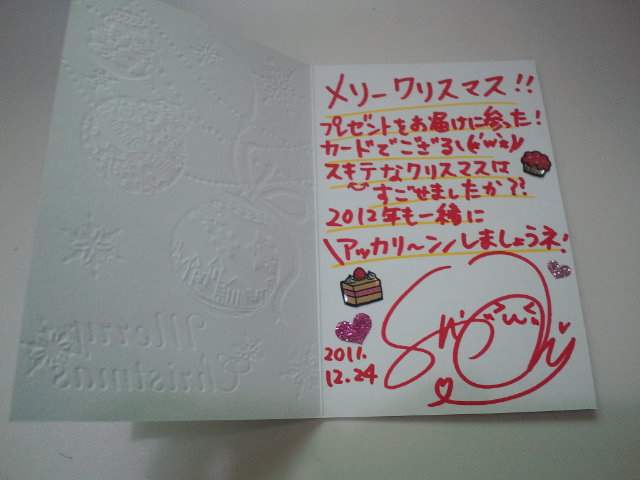 メリークリスマス!!
プレゼントをお届けに参った!
カードでござる\(^'ω'*)/
スキテなクリスマスは
すごせましたか??
2012年も一緒に
\アッカリ〜ン/しましょうネ!
2011.
12.24
Merry
Christmas